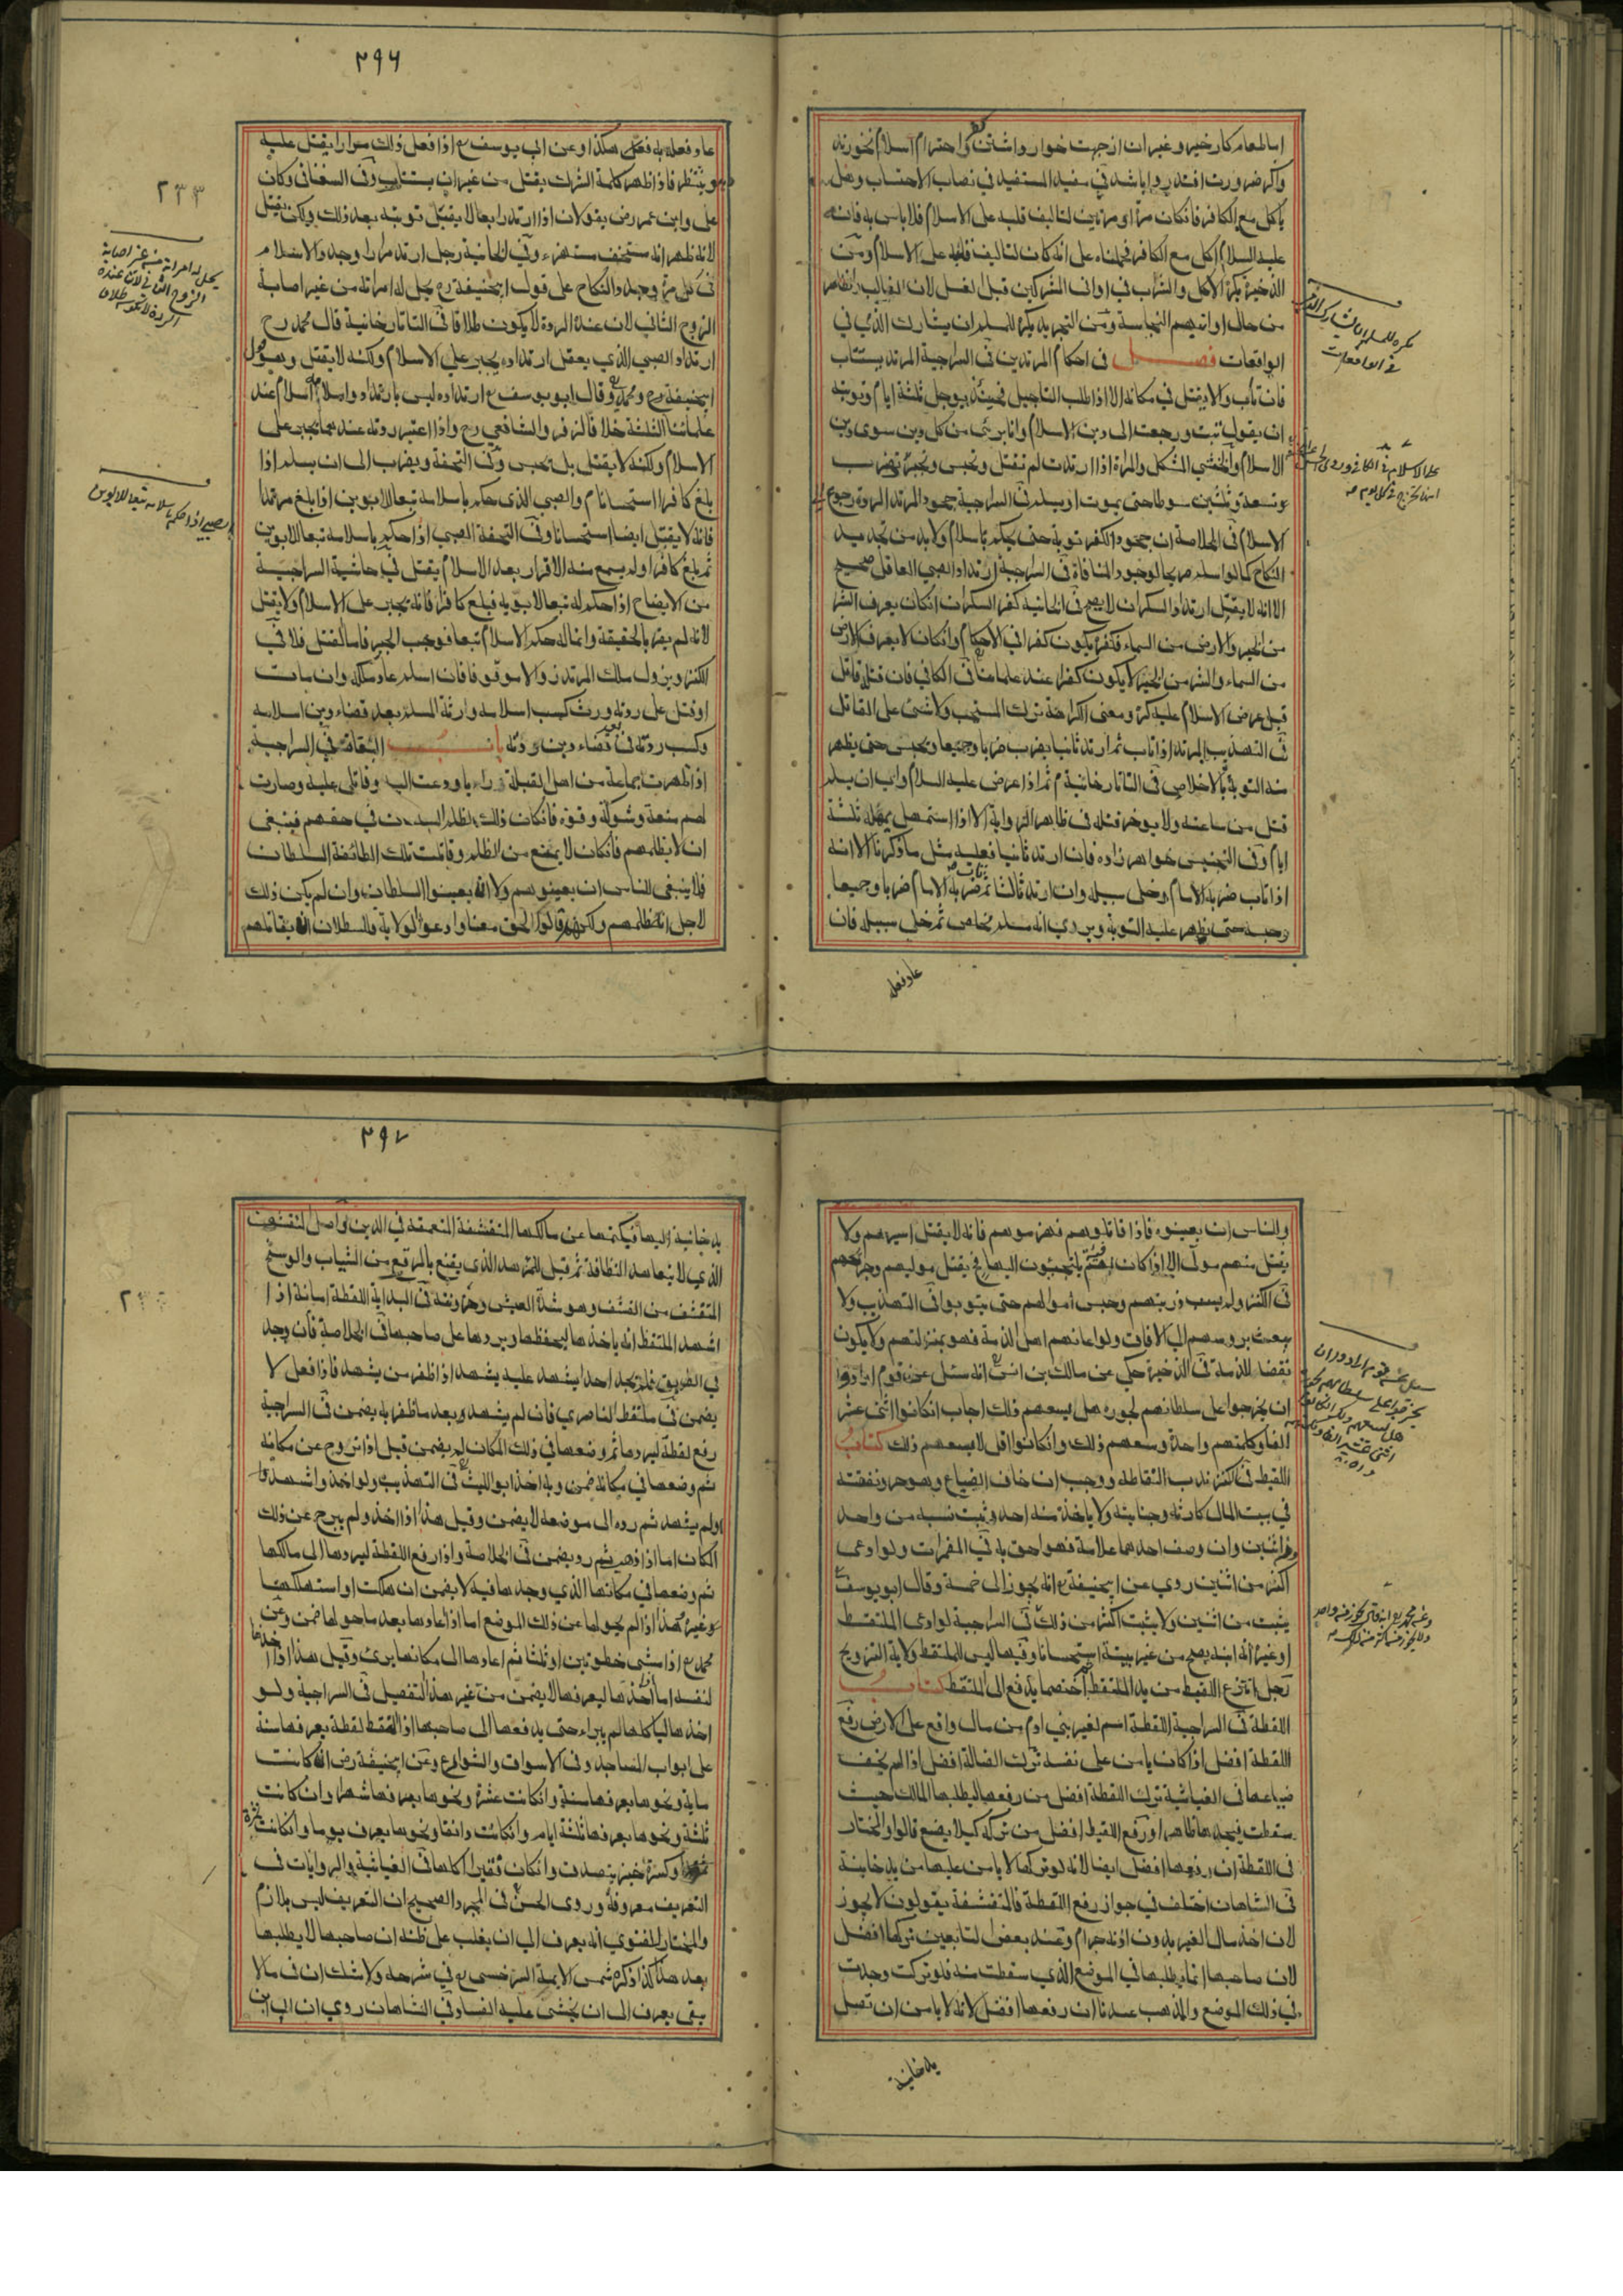 اما لمعام كار خير وغيران از جهت خوار داشتن واحترام اسلام نخورند
واكر ضرورت افتد روا باشد في مفيد المستفيد في نصاب الاحتساب وهل
ياكل مع الكافر فانكان مرة او مرتين لتاليف قلبه على الاسلام فلا باس به فانه
عليه السلام اكل مع الكافر فحملناه على انه كان لتاليف قلبه على الاسلام ومن
الذخيرة يكره الاكل والشرب في اواني المشركين قبل الغسل لان الغالب الظاهر
من حال اوانيهم النجاسة ومن التجريد يكره للمسلم ان يشارك الذمي في
الواقعات فصل في احكام المرتدين في السراجية المرتد يستتاب
فان تاب والا يقتل في مكانه الا اذا طلب التاجيل فحينئذ يوجل ثلثة ايام وتوبته
ان يقول تبت ورجعت الى دين الاسلام وانا برئ من كل دين سوى دين
الاسلام والخنثي المشكل والمراة اذا ارتدت لم تقتل وتحبس وتجبر تضرب
وتسعة وثلثين سوطا حتى يموت او يسلم في السراجية جحود المرتد الردة رجوع الى
الاسلام في الخلاصة ان جحود الكفر توبة حتى يحكم باسلام ولا بد من تجديد
النكاح كما لو اسلم صريحا لوجود المنافاة في السراجية ارتداد الصبي العاقل صحيح
الا انه لا يقتل ارتداد السكران لا يصح في الخانية كفر السكران انكان يعرف الشر
من الخير والارض من السماء فكفره يكون كفرا في الاحكام وانكان لا يعرف الارض
من السماء والشر من الخير لا يكون كفرا عند علمائنا في الكافي فان قتله قاتل
قبل عرض الاسلام عليه كره ومعنى الكراهة ترك المستحب ولا شئ على القاتل
في التهذيب المرتد اذا تاب ثم ارتد ثانيا يضرب ضربا وجيعا ويحبس حتى يظهر
منه التوبة بالاخلاص في التاتارخانية ثم اذا عرض عليه السلام وابى ان يسلم
قتل من ساعته ولا يوخر قتله في ظاهر الرواية الا اذا استمهل يمهله ثلثة
ايام وفي التجنيس خواهرزاده فان ارتد ثانيا فعليه مثل ما ذكرنا الا انه
اذا تاب ضربه الامام وخلى سبيله وان ارتد ثالثا ثم تاب ضربه الامام ضربا وجيعا
وحبسه حتى يظهر عليه التوبة ويرى انه مسلم مخلص ثم خلى سبيله فان
عاد فعله
يكره للمسلم ان يشارك الذمي
في الواقعات
٢٩٦
٢٣٣
عاد فعله به فعل هكذا وعن ابي يوسف رح اذا فعل ذلك مرارا يقتل عليه
وينتظر فاذا ظهر كلمة الشرك يقتل من غير ان يستتاب وفي السغناقي وكان
على وابن عمر رض يقولان اذا ارتد رابعا لا يقبل توبته بعد ذلك ولكن يقتل
لانه ظهر انه مستخف مستهزء وفي الخانية رجل ارتد مرارا وجدد الاسلام
في كل مرة وجدد النكاح على قول ابيحنيفة رح يحل له امراته من غير اصابة
الزوج الثاني لان عنده الردة لا يكون طلاقا في التاتارخانية قال محمد رح
ارتداد الصبي الذي يعقل ارتداد يجبر على الاسلام ولكنه لا يقتل وهو قول
ابيحنيفة رح ومحمد رح وقال ابو يوسف رح ارتداده ليس بارتداد واسلامه اسلام عند
علمائنا الثلثة خلافا لزفر والشافعي رح واذا اعتبر ردته عندهما يجبر على
الاسلام ولكنه لا يقتل بل يحبس وفي التحفة ويضرب الى ان يسلم اذا
بلغ كافرا استحسانا م والصبي الذي حكم باسلامه تبعا لابوين اذا بلغ مرتدا
فانه لا يقتل ايضا استحسانا وفي التحفة الصبي اذا حكم باسلامه تبعا لابوين
ثم بلغ كافرا ولم يسمع منه الاقرار بعد الاسلام يقتل في حاشية السراجية
من الايضاح اذا حكم له تبعا لابويه فبلغ كافرا فانه يجبر على الاسلام ولا يقتل
لانه لم يقر بالحقيقة وانما له حكم الاسلام تبعا فوجب الجبر فاما القتل فلا في
الكنز ويزول ملك المرتد زوالا موقوفا فان اسلم عاد ملكه وان مات
او قتل على ردته ورث كسب اسلامه وارثه المسلم بعد قضاء دين اسلامه
وكسب ردته فئ بعد قضاء دين ردته باب البغاة في السراجية
اذا ظهرت جماعة من اهل القبلة
لهم منعة وشوكة وقوة فانكان ذلك لظلم السلطان في حقهم فينبغي
ان لا يظلمهم فانكان لا يمتنع من الظلم وقاتلت تلك الطائفة السلطان
فلا ينبغي للناس ان يعينوهم ولا ان يعينوا السلطان وان لم يكن ذلك
لاجل انه ظلمهم ولكنهم قالوا الحق معنا وادعوا الولاية فللسلطان ان يقاتلهم
يحل له امراته من غير اصابة
الزوج الثاني لان عنده
الردة لا تكون طلاق
الصبي اذا حكم باسلامه تبعا للابوين
والناس ان يعينوه فاذا قاتلوهم فهزموهم فانه لا يقتل اسيرهم ولا
يقتل منهم مولى الا اذا كان لهم فئة يلتجئون اليها فح يقتل موليهم وجريحهم
في الكنز ولم يسب ذريتهم وحبس اموالهم حتى يتوبوا في التهذيب ولا
يبعث بروسهم الى الافاق ولو اعانهم اهل الذمة فهو بمنزلتهم ولا يكون
نقضا للذمة في الذخيرة حكي عن مالك بن انس انه سئل عن قوم ارادوا
ان يخرجوا على سلطانهم لجوره هل يسعهم ذلك اجاب انكانوا اثنى عشر
الفا وكلمتهم واحدة وسعهم ذلك وانكانوا اقل لا يسعهم ذلك كتاب
اللقيط في الكنز ندب التقاطه ووجب ان خاف الضياع وهو حر ونفقته
في بيت المال كارثه وجنايته ولا ياخذ منه احد وثبت نسبه من واحد
ومن اثنين وان وصف احدهما علامة فهو احق به في المضمرات ولو ادعى
اكثر من اثنين روي عن ابيحنيفة رح انه يجوز الى خمسة وقال ابو يوسف رح
يثبت من اثنين ولا يثبت اكثر من ذلك في السراجية لو ادعى الملتقط
او غيره انه ابنه يصح من غير بينة استحسانا وفيها ليس للملتقط ولاية التزويج
رجل انتزع اللقيط من يد الملتقط اختصما يدفع الى الملتقط كتاب
اللقطة في السراجية اللقطة اسم لغير بني ادم من مال واقع على الارض رفع
اللقطة افضل اذا كان يامن على نفسه ترك الضالة افضل اذا لم يخف
ضياعها في الغياثية ترك اللقطة افضل من رفعها ليطلبها المالك حيث
سقطت فيجدها ظاهرا ورفع اللقيط افضل من تركه كيلا يضيع قالوا والمختار
في اللقطة ان رفعها افضل ايضا لانه لو تركها لا يامن عليها من يد خاينة
في الشاهان اختلف في جواز رفع اللقطة فالمتقشفة يقولون لا يجوز
لان اخذ مال الغير بدون اذنه حرام وعند بعض التابعين تركها افضل
لان صاحبها انما يطلبها في الموضع الذي سقطت منه فلو تركت وجدت
في ذلك الموضع والمذهب عندنا ان رفعها افضل لانه لا يامن ان تصل
يد خاينة
٢٩٧
يد خائنة اليها فيكتمها عن مالكها المتقشفة المتعمقة في الدين واصل المتقشف
الذي لا يتعاهد النظافة ثم قيل للمتزهد الذي يقنع بالمرقع من الثياب والوسخ
المتقشف من القشف وهو شدة العيش وخشونته في البداية اللقطة امانة اذا
اشهد الملتقط انه ياخذها ليحفظها ويردها على صاحبها في الخلاصة فان وجد
في الطريق فلم يجد احدا يشهد عليه يشهد اذا ظفر من يشهد فاذا فعل لا
يضمن في ملتقط الناصري فان لم يشهد وبعد ما ظفر به يضمن في السراجية
رفع لقطة ليردها ثم وضعها في ذلك المكان لم يضمن قيل اذا تروح عن مكانه
ثم وضعها في مكانه ضمن وبه اخذ ابو الليث في التهذيب ولو اخذ واشهد
ولم يشهد ثم رده الى موضعه لا يضمن وقيل هذا اذا اخذ ولم يبرح عن ذلك
المكان اما اذا ذهب ثم رد يضمن في الخلاصة واذا رفع اللقطة ليردها الى مالكها
ثم وضعها في مكانها الذي وجدها فيه لا يضمن ان هلكت او استهلكها
غيره هذا اذا لم يحولها عن ذلك الموضع اما اذا عادها بعد ما حولها ضمن وعن
محمد رح اذا مشى خطوتين او ثلثا ثم اعادها الى مكانها برئ وقيل هذا اذا اخذها
لنفسه اما اخذها ليعرفها لا يضمن من غير هذا التفصيل في السراجية ولو
اخذها لياكلها لم يبراء حتى يدفعها الى صاحبها اذا التقط لقطة يعرفها سنة
على ابواب المساجد وفي الاسواق والشوارع وعن ابيحنيفة رض انه كانت
ماية ونحوها يعرفها سنة وانكانت عشرة ونحوها يعرفها شهرا وان كانت
ثلثة ونحوها يعرفها ثلثة ايام وانكانت دانقا ونحوها يعرف يوما وانكانت تمرة
او كسرة خبز يتصدق وانكان فقيرا اكلها في الغياثية والروايات في
التعريف معروفة وروى الحسن في المجرد الصحيح ان التعريف ليس بلازم
والمختار للفتوى انه يعرف الى ان يغلب على ظنه ان صاحبها لا يطلبها
بعد هذا كذا ذكره شمس الايمة السرخسي رح في شرحه ولا شك ان في مالا
يبقى يعرف الى ان يخشى عليه الفساد في الشاهان روي ان ابي ابن